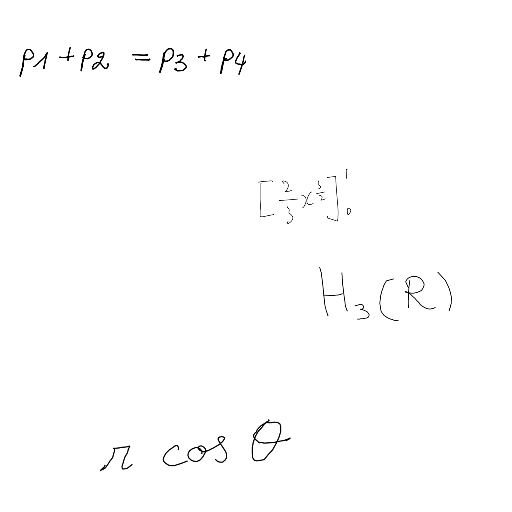 p1+p2 = p3 + p4
[2/3 x^3/2]^1_0
H_3(R)
r cos θ